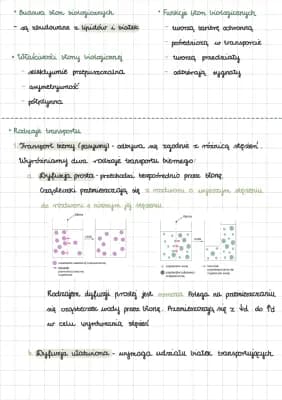 • Budowa błon biologicznych
- są zbudowane z lipidów i białek
• Właściwości błony biologicznej
- selektywnie przepuszczalna
- asymetryczność
- półpłynna
• Funkcje błon biologicznych
- tworzą barierę ochronną
- pośredniczą w transporcie
- tworzą przedziały
- odbierają sygnały
• Rodzaje transportu
1. Transport bierny (pasywny) - odbywa się zgodnie z różnicą stężeń.
Wyróżniamy dwa rodzaje transportu biernego:
a. Dyfuzja prosta - przechodzi bezpośrednio przez błonę.
Cząsteczki przemieszczają się z roztworu o wyższym stężeniu
do roztworu o niższym jej stężeniu.
Rodzajem dyfuzji prostej jest osmoza. Polega na przemieszczaniu
się cząsteczek wody przez błonę. Przemieszczają się z ↓d do ↑d
w celu wyrównania stężeń
b. Dyfuzja ułatwiona - wymaga udziału białek transportujących